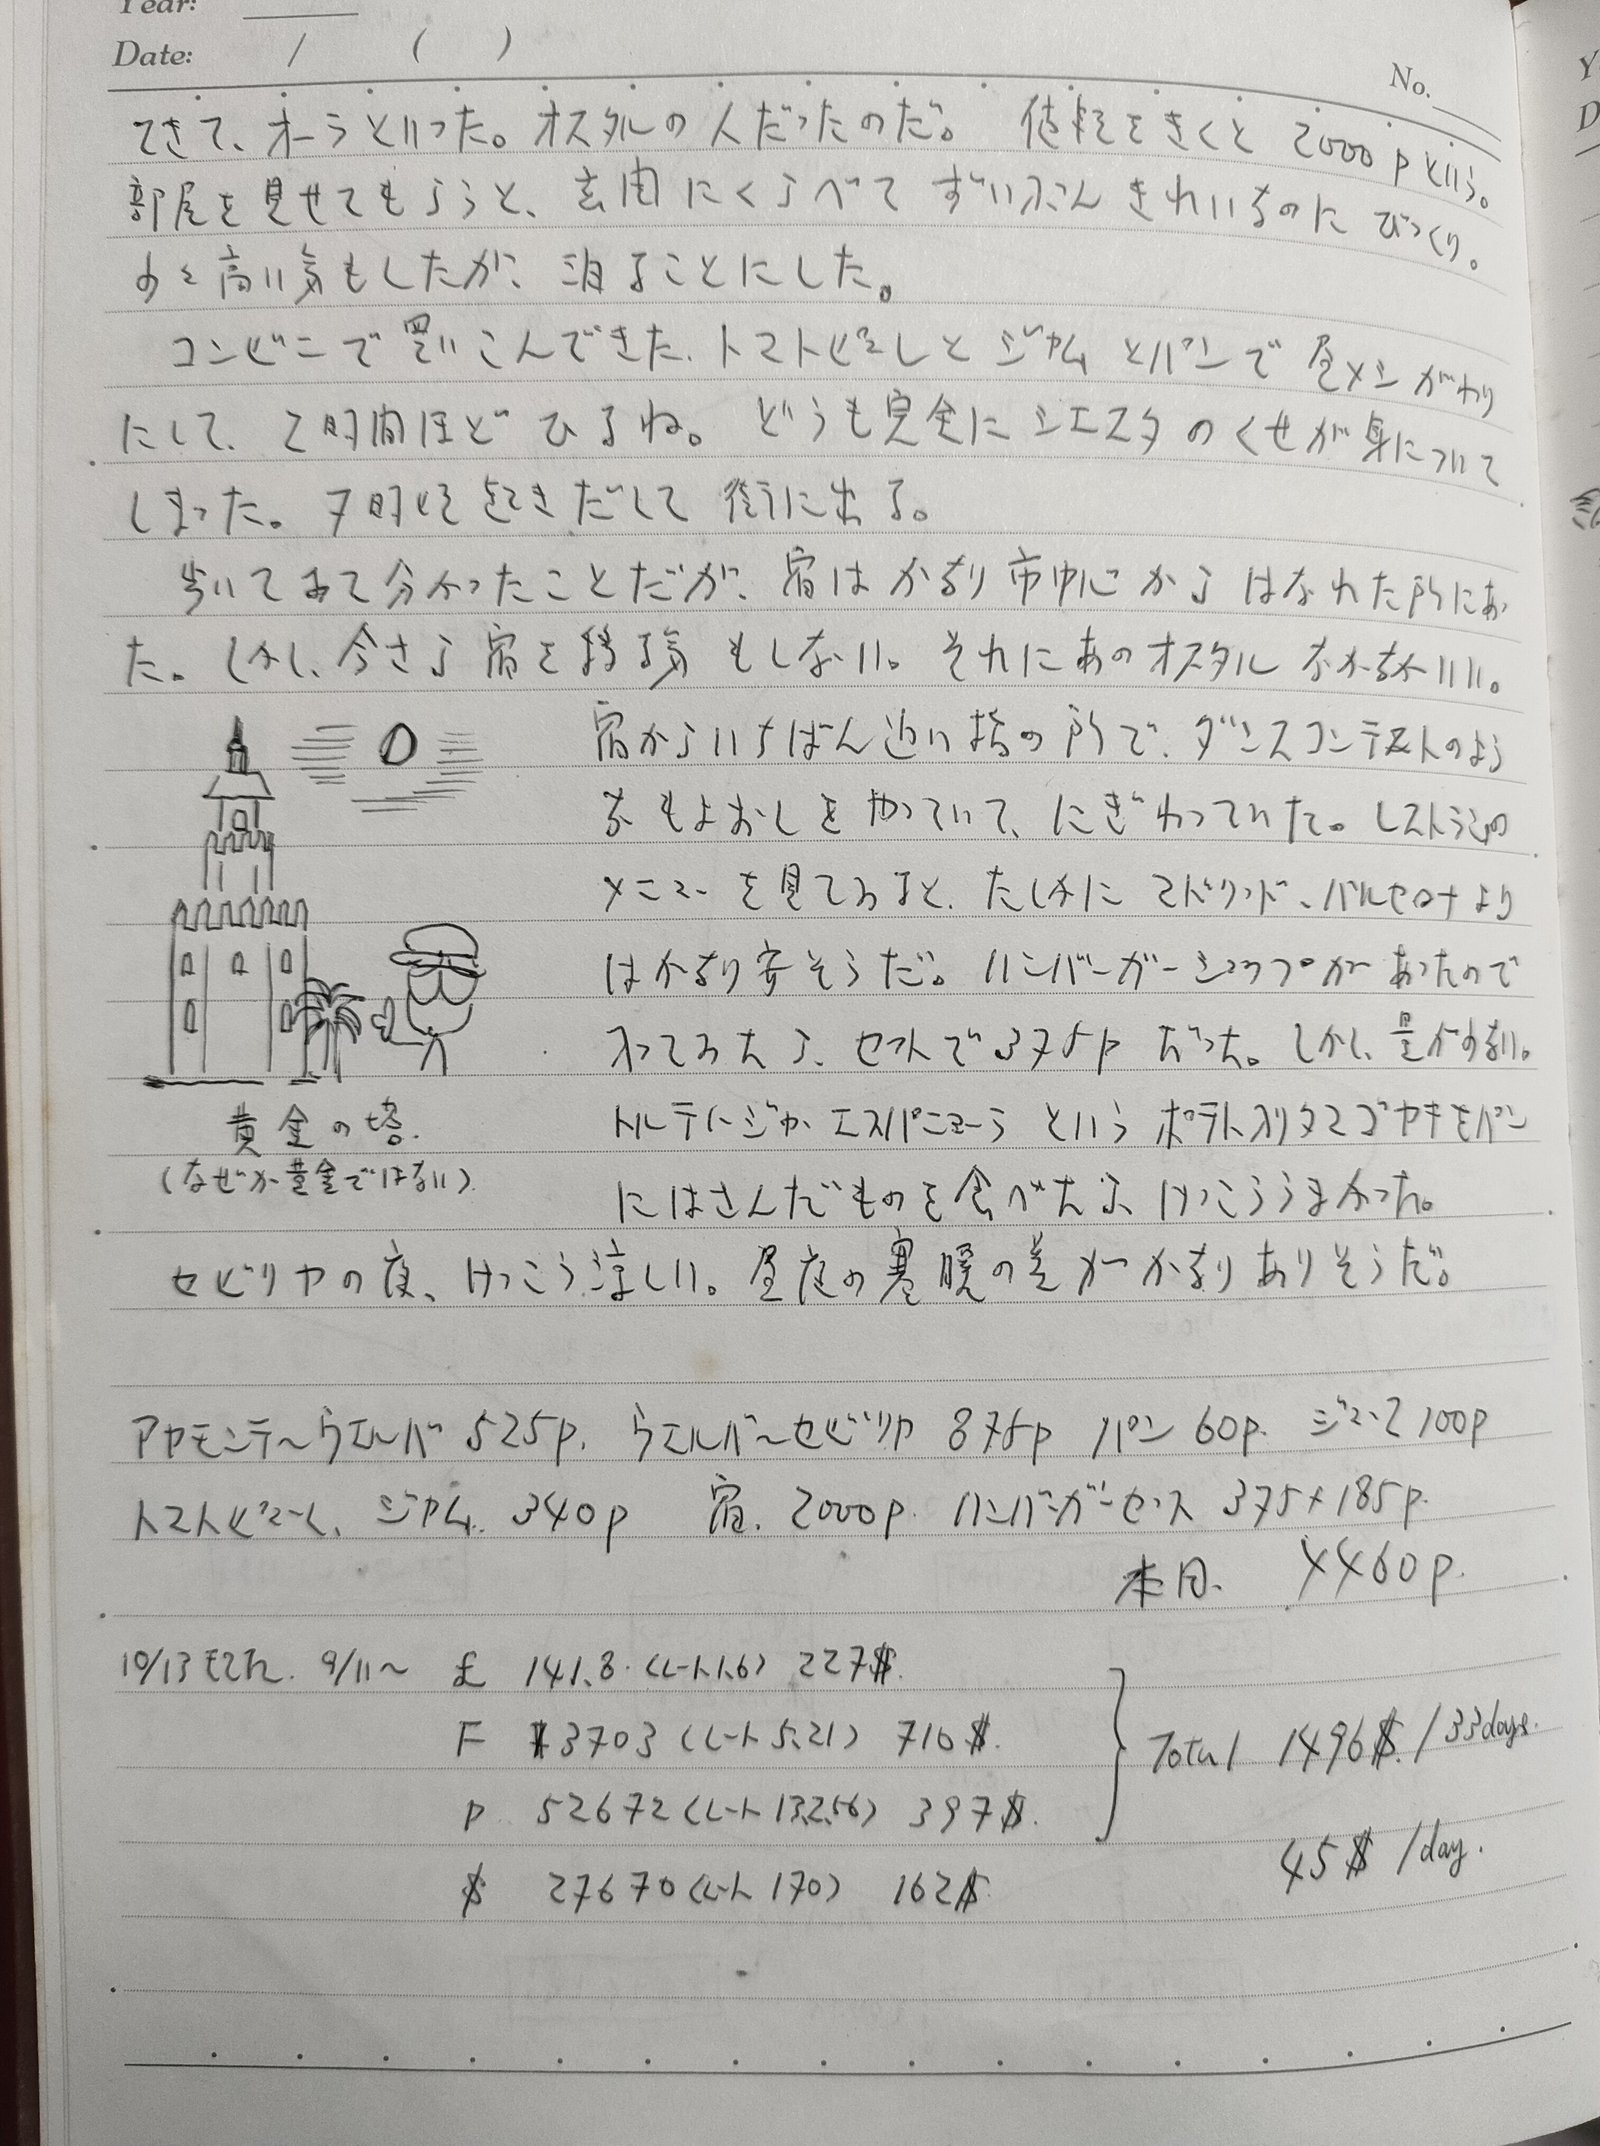 Year:
Date: / ( )
No.
てきて、オーラといった。オスタルの人だったのだ。 値段をきくと 2000pという。
部屋を見せてもらうと、玄関にくらべて ずいぶん きれいなのに びっくり。
少々高い気もしたが、泊ることにした。
コンビニで買いこんできた、トマトピューレと ジャム とパンで 昼メシがわり
にして、2時間ほど ひるね。 どうも完全に シエスタ のくせが身について
しまった。 7時頃 起きだして 街に出る。
歩いてみて分かったことだが、宿は かなり 市中心から はなれた所にあ
た。しかし、今さら 宿を移る気もしない。それにあのオスタル なかなかいい。
宿からいちばん近い橋の所で、ダンスコンテストのよう
なもよおしをやっていて、にぎわっていた。レストランの
メニューを見てみると、たしかに マドリッド、バルセロナより
はかなり安そうだ。ハンバーガーショップがあったので
入ってみたら、セットで375pだった。しかし、量が少ない。
トルティージャ エスパニョーラ という ポテト入りタマゴヤキをパン
にはさんだものを食べたら、けっこううまかった。
黄金の塔.
(なぜか黄金ではない).
セビリヤの夜、けっこう涼しい。昼夜の寒暖の差がかなりありそうだ。
アヤモンテ〜ウエルバ 525p. ウエルバ〜セビリヤ 875p パン 60p. ジュース100p
トマトピューレ、ジャム. 340p 宿. 2000p. ハンバーガーセット 375+185p.
本日. 4460p.
10/13 9/11〜 £ 141.8 (レート1.6) 227$.
F 3703 (レート5.21) 710$.
p 52672 (レート132.56) 397$.
$ 27670 (レート170) 162$
Total 1496$/33days.
45$/day.